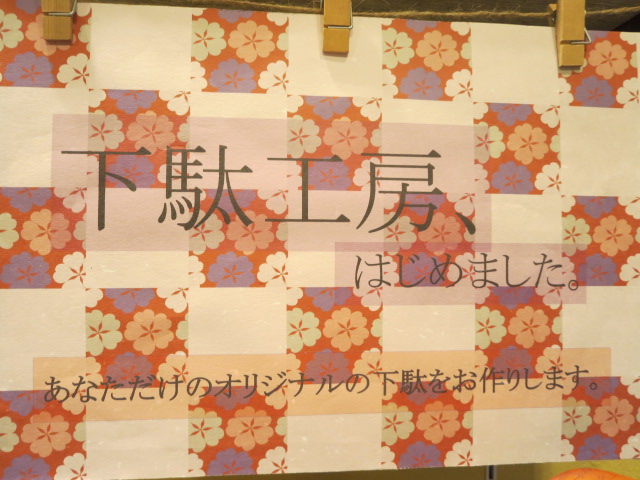 下駄工房、
はじめました。
あなただけのオリジナルの下駄をお作りします。